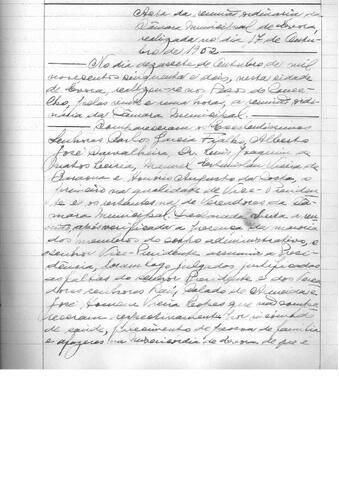 Acta da reunião ordinária da
Câmara Municipal de Évora,
realizada no dia 17 de Outu-
bro de 1952
No dia dezassete de Outubro de mil
novecentos cinquenta e dois, nesta cidade
de Évora, realizou-se nos Paços do Conce-
lho, pelas vinte e uma horas, a reunião ordi-
nária da Câmara Municipal.
Compareceram os Excelentíssimos
Senhores Carlos Garcia Alberto
José Joaquim
Manuel Vieira de
e António Augusto da Costa, o
primeiro na qualidade de Vice-Presiden-
te e os restantes na de Vereadores da Câ-
mara Municipal. Declarada aberta a reu-
nião, após verificada a presença da maioria
dos membros do corpo administrativo, e
o senhor Vice-Presidente assumir a Presi-
dência, foram logo julgadas justificadas
as faltas do senhor Presidente e dos Verea-
dores senhores de Almeida e
José Vieira Lopes que não compa-
receram respectivamente por incómodo
de saúde, falecimento de pessoa de família
e afazeres na Misericórdia de Évora, de que é